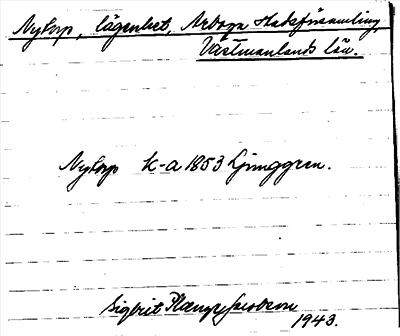 Nytorp, lägenhet, Arboga Stadsförsamling,
Västmanlands län.
Nytorp k-a 1853 Ljunggren.
Sigbrit Plænge Jacobson
1943.